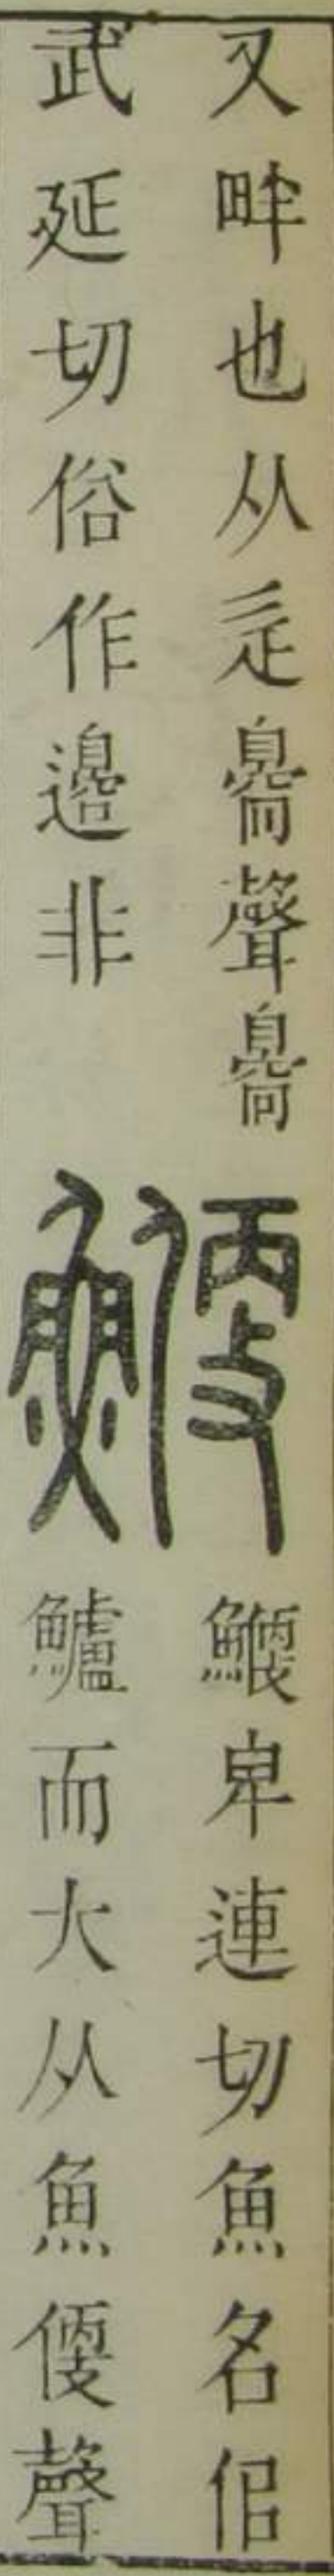 又畔也从辵臱聲臱
武延切俗作邊非
鯾
鯾卑連切魚名佀
鱸而大从魚𠊳聲